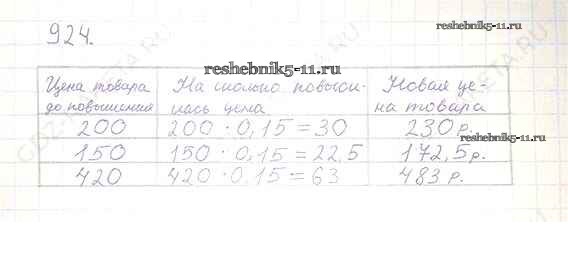 reshebnik5-11.ru
924.
reshebnik5-11.ru
Цена товара до повышения
На сколько повысилась цена
Новая цена товара
200 200 · 0,15 = 30 230 р.
reshebnik5-11.ru
150 150 · 0,15 = 22,5 172,5 р.
420 420 · 0,15 = 63 483 р.
reshebnik5-11.ru